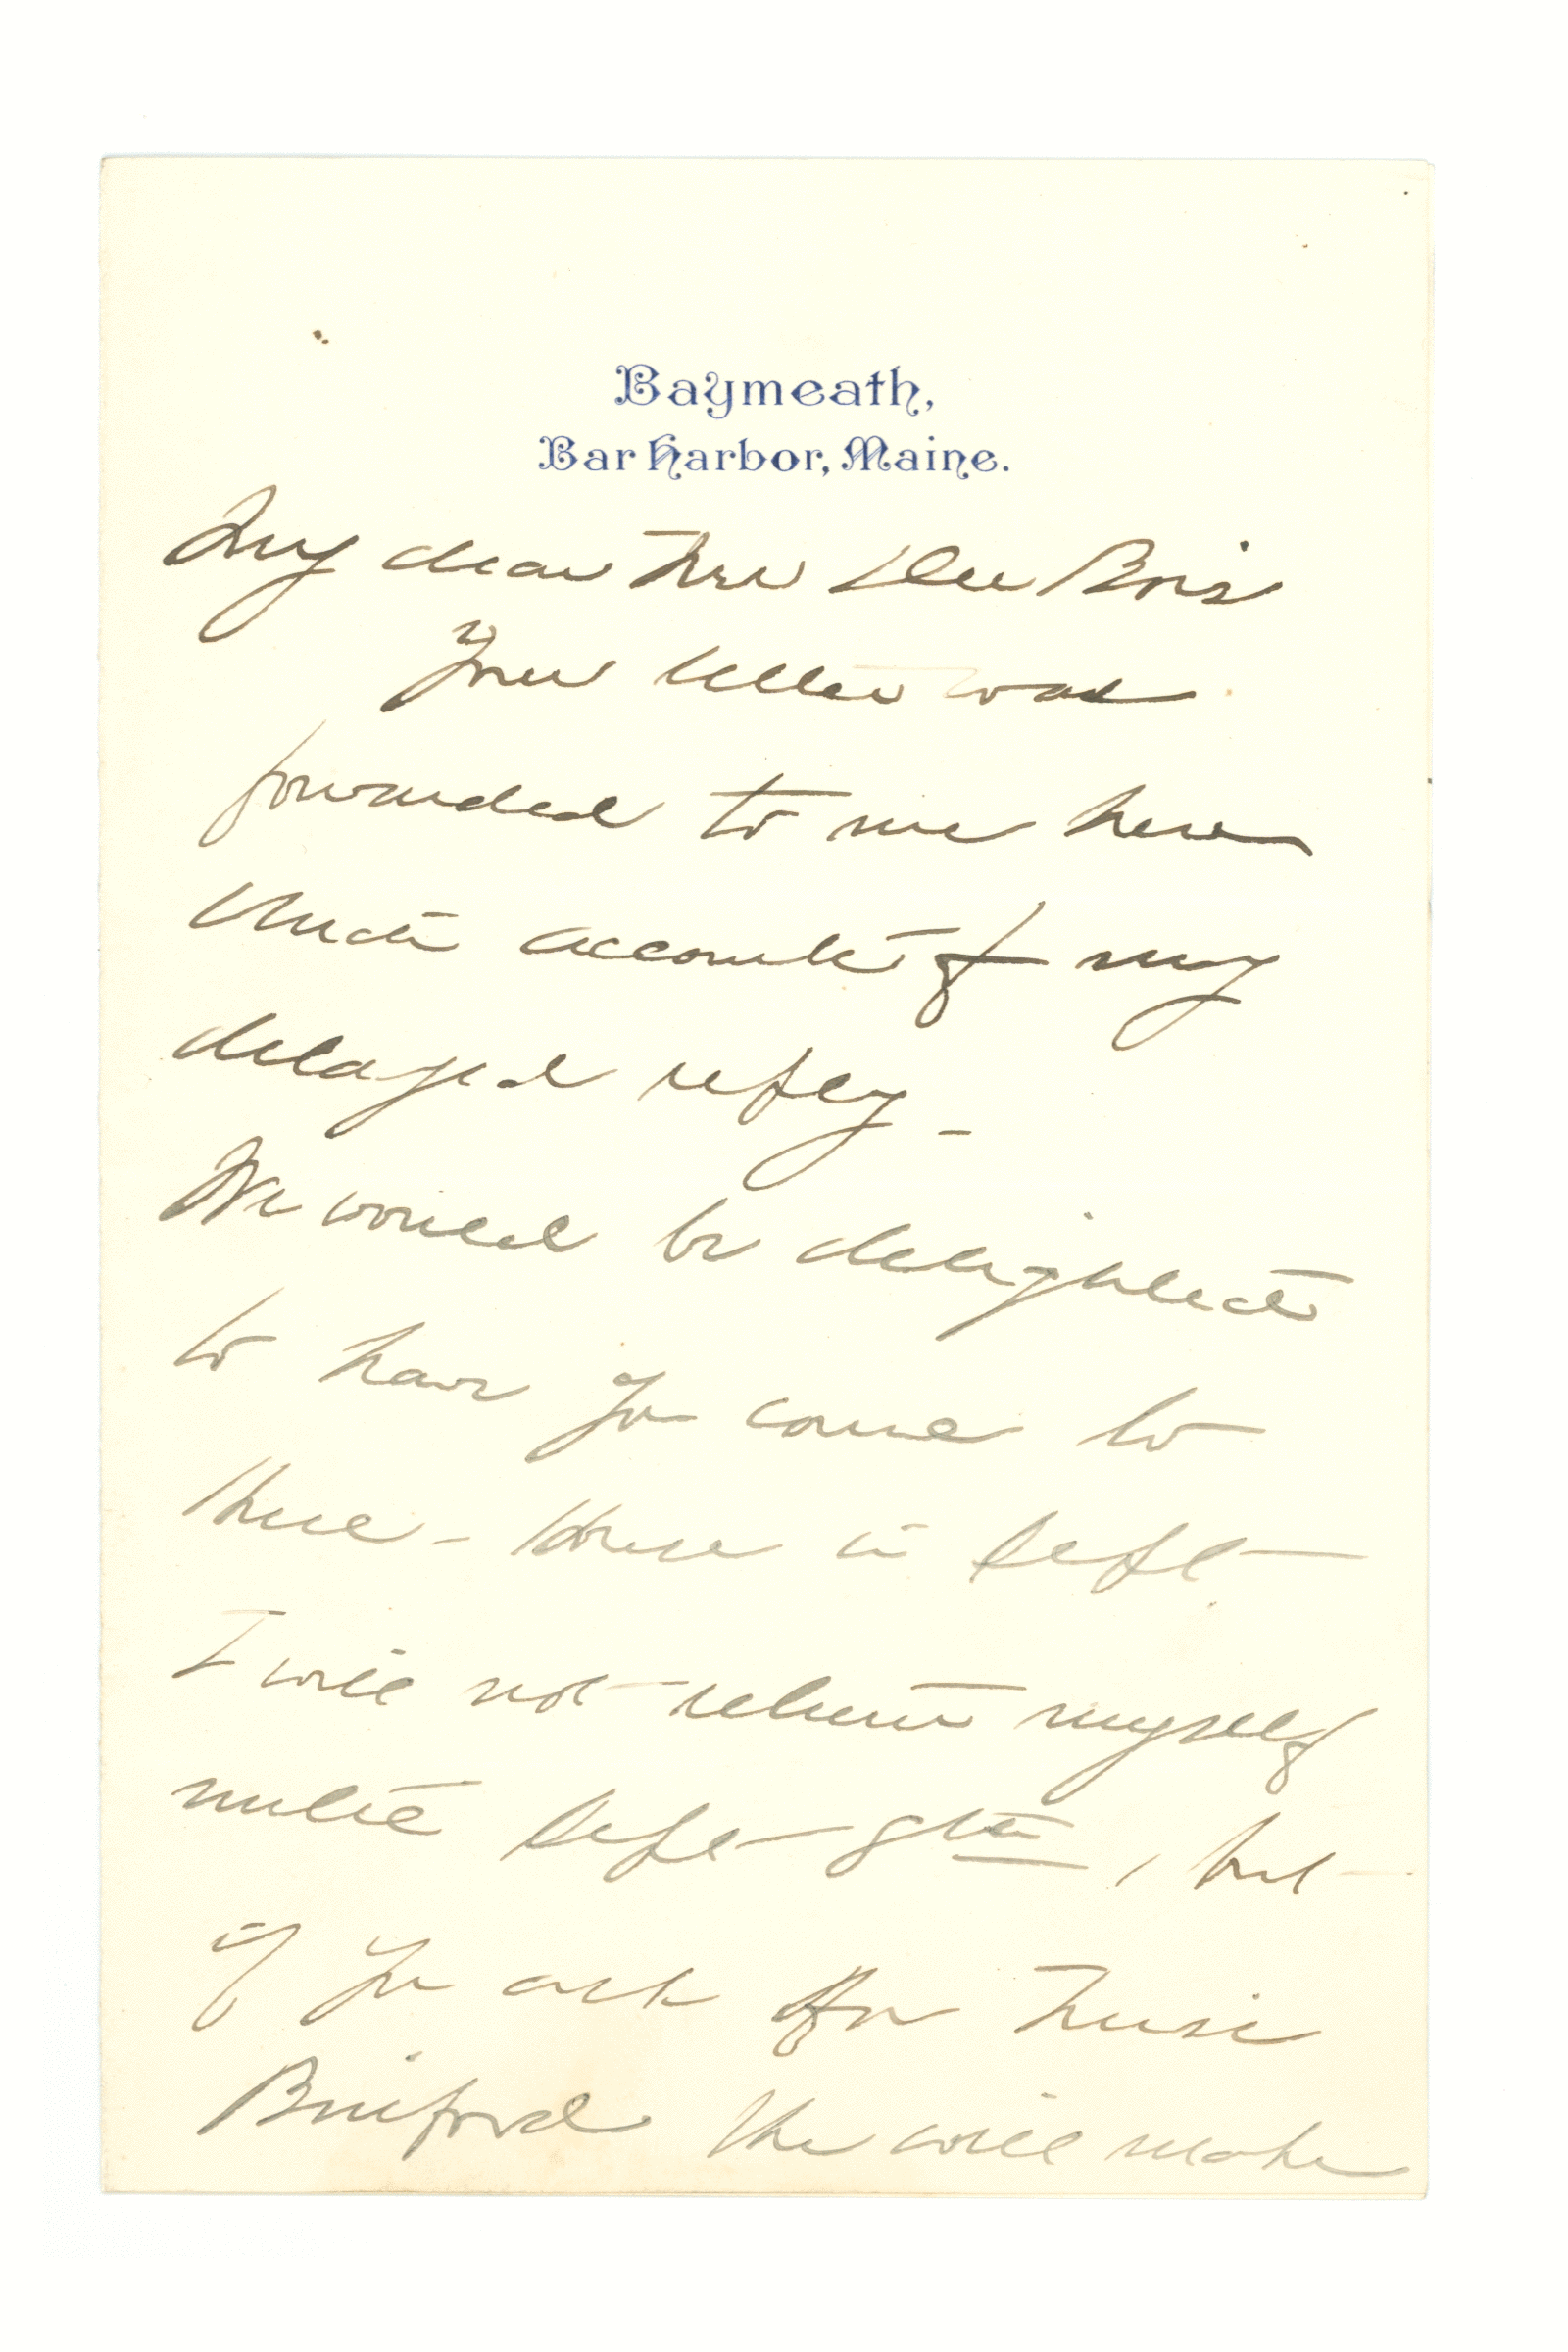 Baymeath,
Bar Harbor, Maine.
My dear Mr. Du Bois
Your letter was
forwarded to me here
which accounts of my
delayed reply -
We would be delighted
to have you come to
Hull - House in Sept
I will not return myself
until Sept 9th, but
if you ask for Miss
Binford she will make